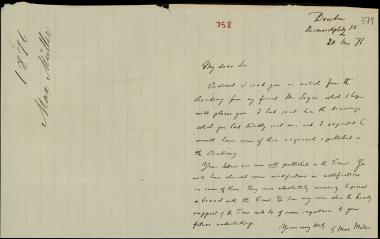 1876
Max Müller
358
379
Dresden
Bismarckplatz 10
20 Nov 76
My dear Sir
Enclosed I send you an article from the
Academy from my friend Mr. Sayce which I hope
will please you. I had sent him the drawings
which you had kindly sent me, and I expected he
would have some of them engraved & published in
the Academy.
Your letters are now all published in the Times. You
will have observed some modifications or
in some of them. They were absolutely necessary to prevent
a breach with the Times. So far my idea that the hearty
support of the Times will be of some importance to your
future undertakings.
Yours very truly
Max Müller